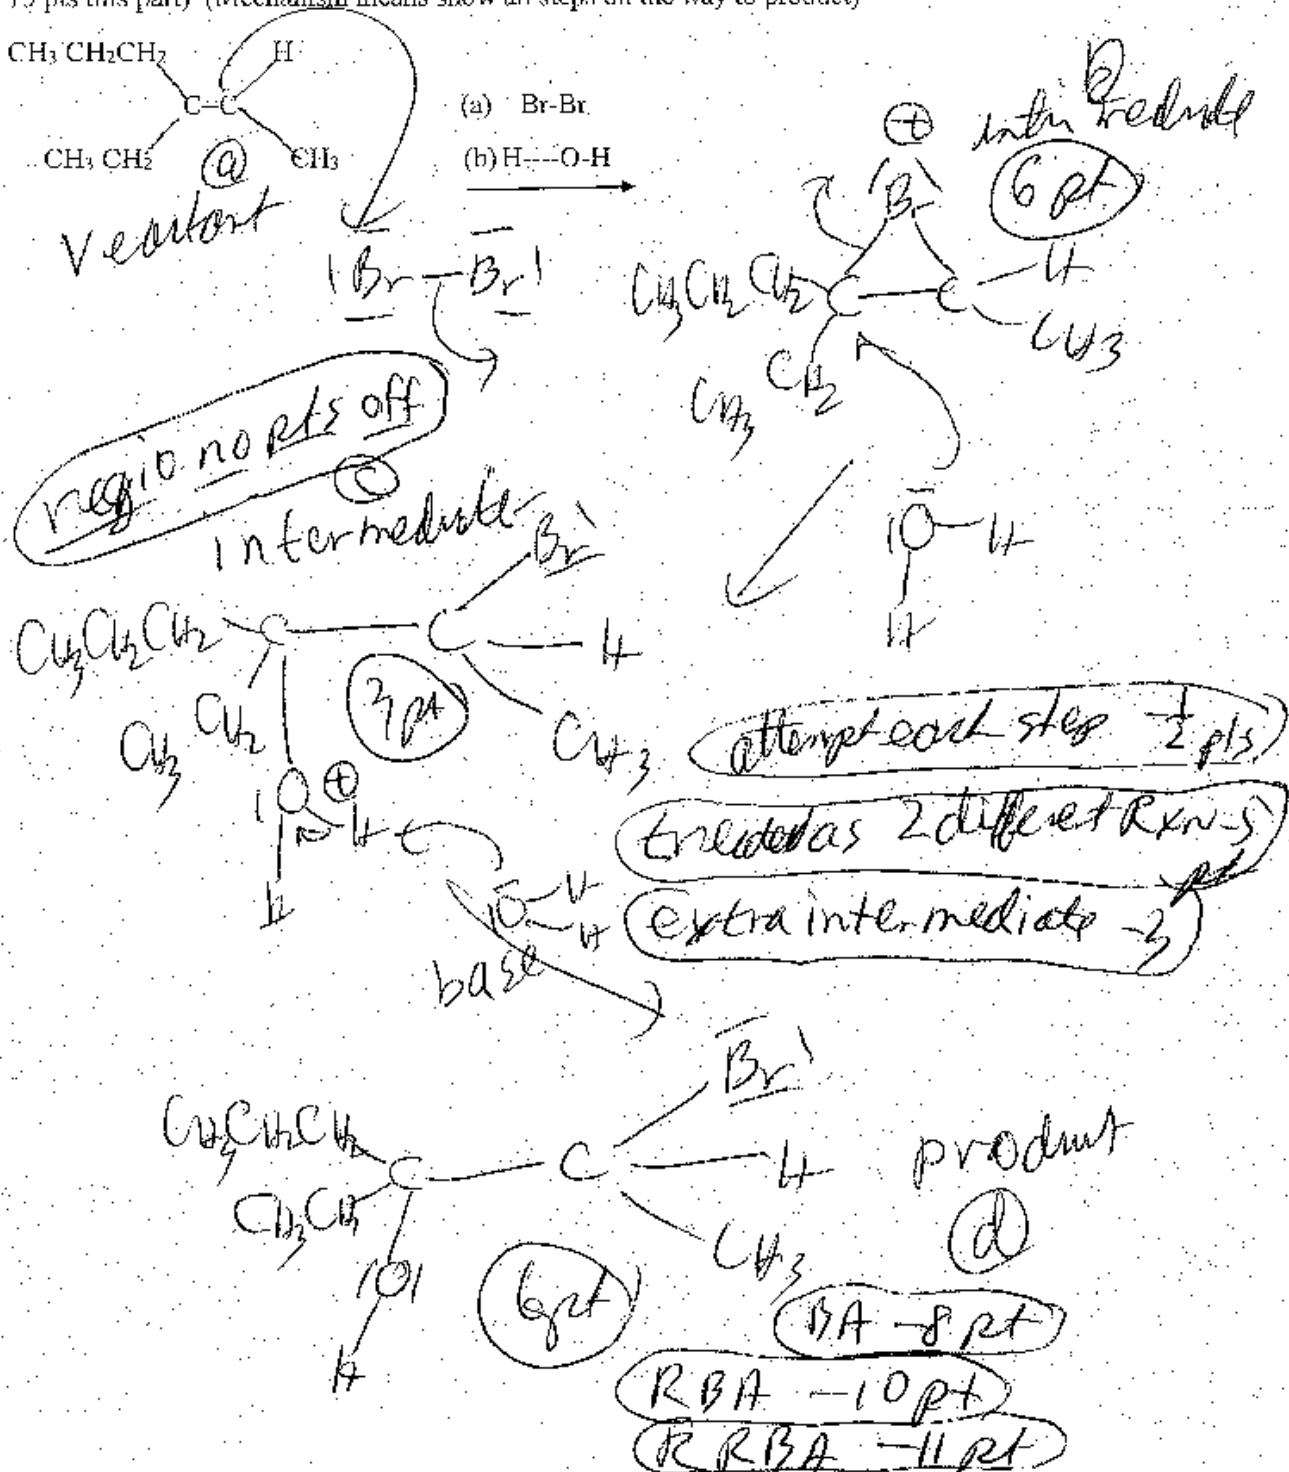 15 pts this part) (Mechanism means show all steps on the way to product)
CH3 CH2CH2 H
C=C
CH3 CH2 CH3
(a)
(a) Br-Br
(b) H----O-H
Br - Br
b
+
Br
6 pt
CH3CH2CH2 C C H
CH3
CH2
CH3
O-H
H
regio no pts off
c
intermediate
Br
CH3CH2CH2 C C H
CH2
CH3
3 pt
CH3
O + H
H
O H
H
base
attempt each step - 1/2 pts
treated as 2 different Rxn -5 pt
extra intermediate -3
Br
CH3CH2CH2 C C H
CH3CH2
CH3
O
H
6 pt
product
d
BA -8 pt
RBA -10 pt
RRBA -11 pt